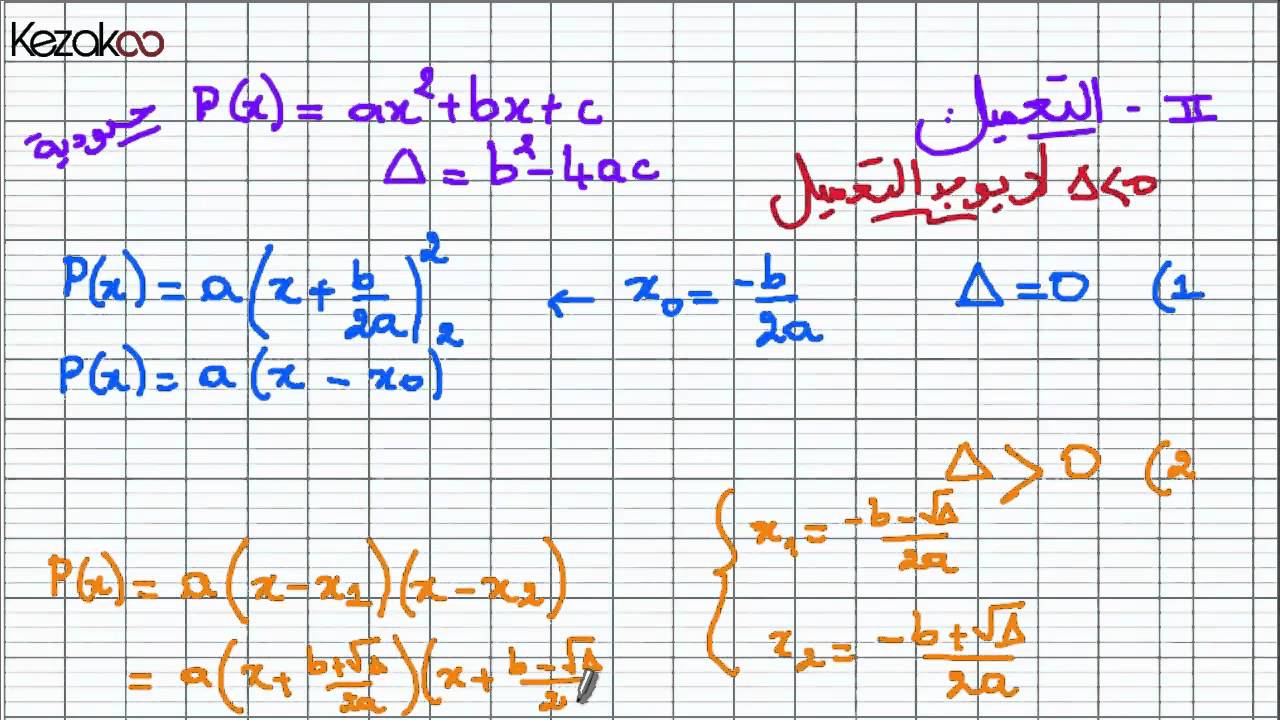 Kezakoo
II - التعميل
P(x) = ax² + bx + c
Δ = b² - 4ac
Δ < 0 لا يوجد التعميل
(1 Δ = 0
x₀ = -b/2a ←
P(x) = a(x + b/2a)²
P(x) = a(x - x₀)²
(2 Δ > 0
x₁ = (-b - √Δ)/2a
x₂ = (-b + √Δ)/2a
P(x) = a(x - x₁)(x - x₂)
= a(x + (b + √Δ)/2a)(x + (b - √Δ)/2